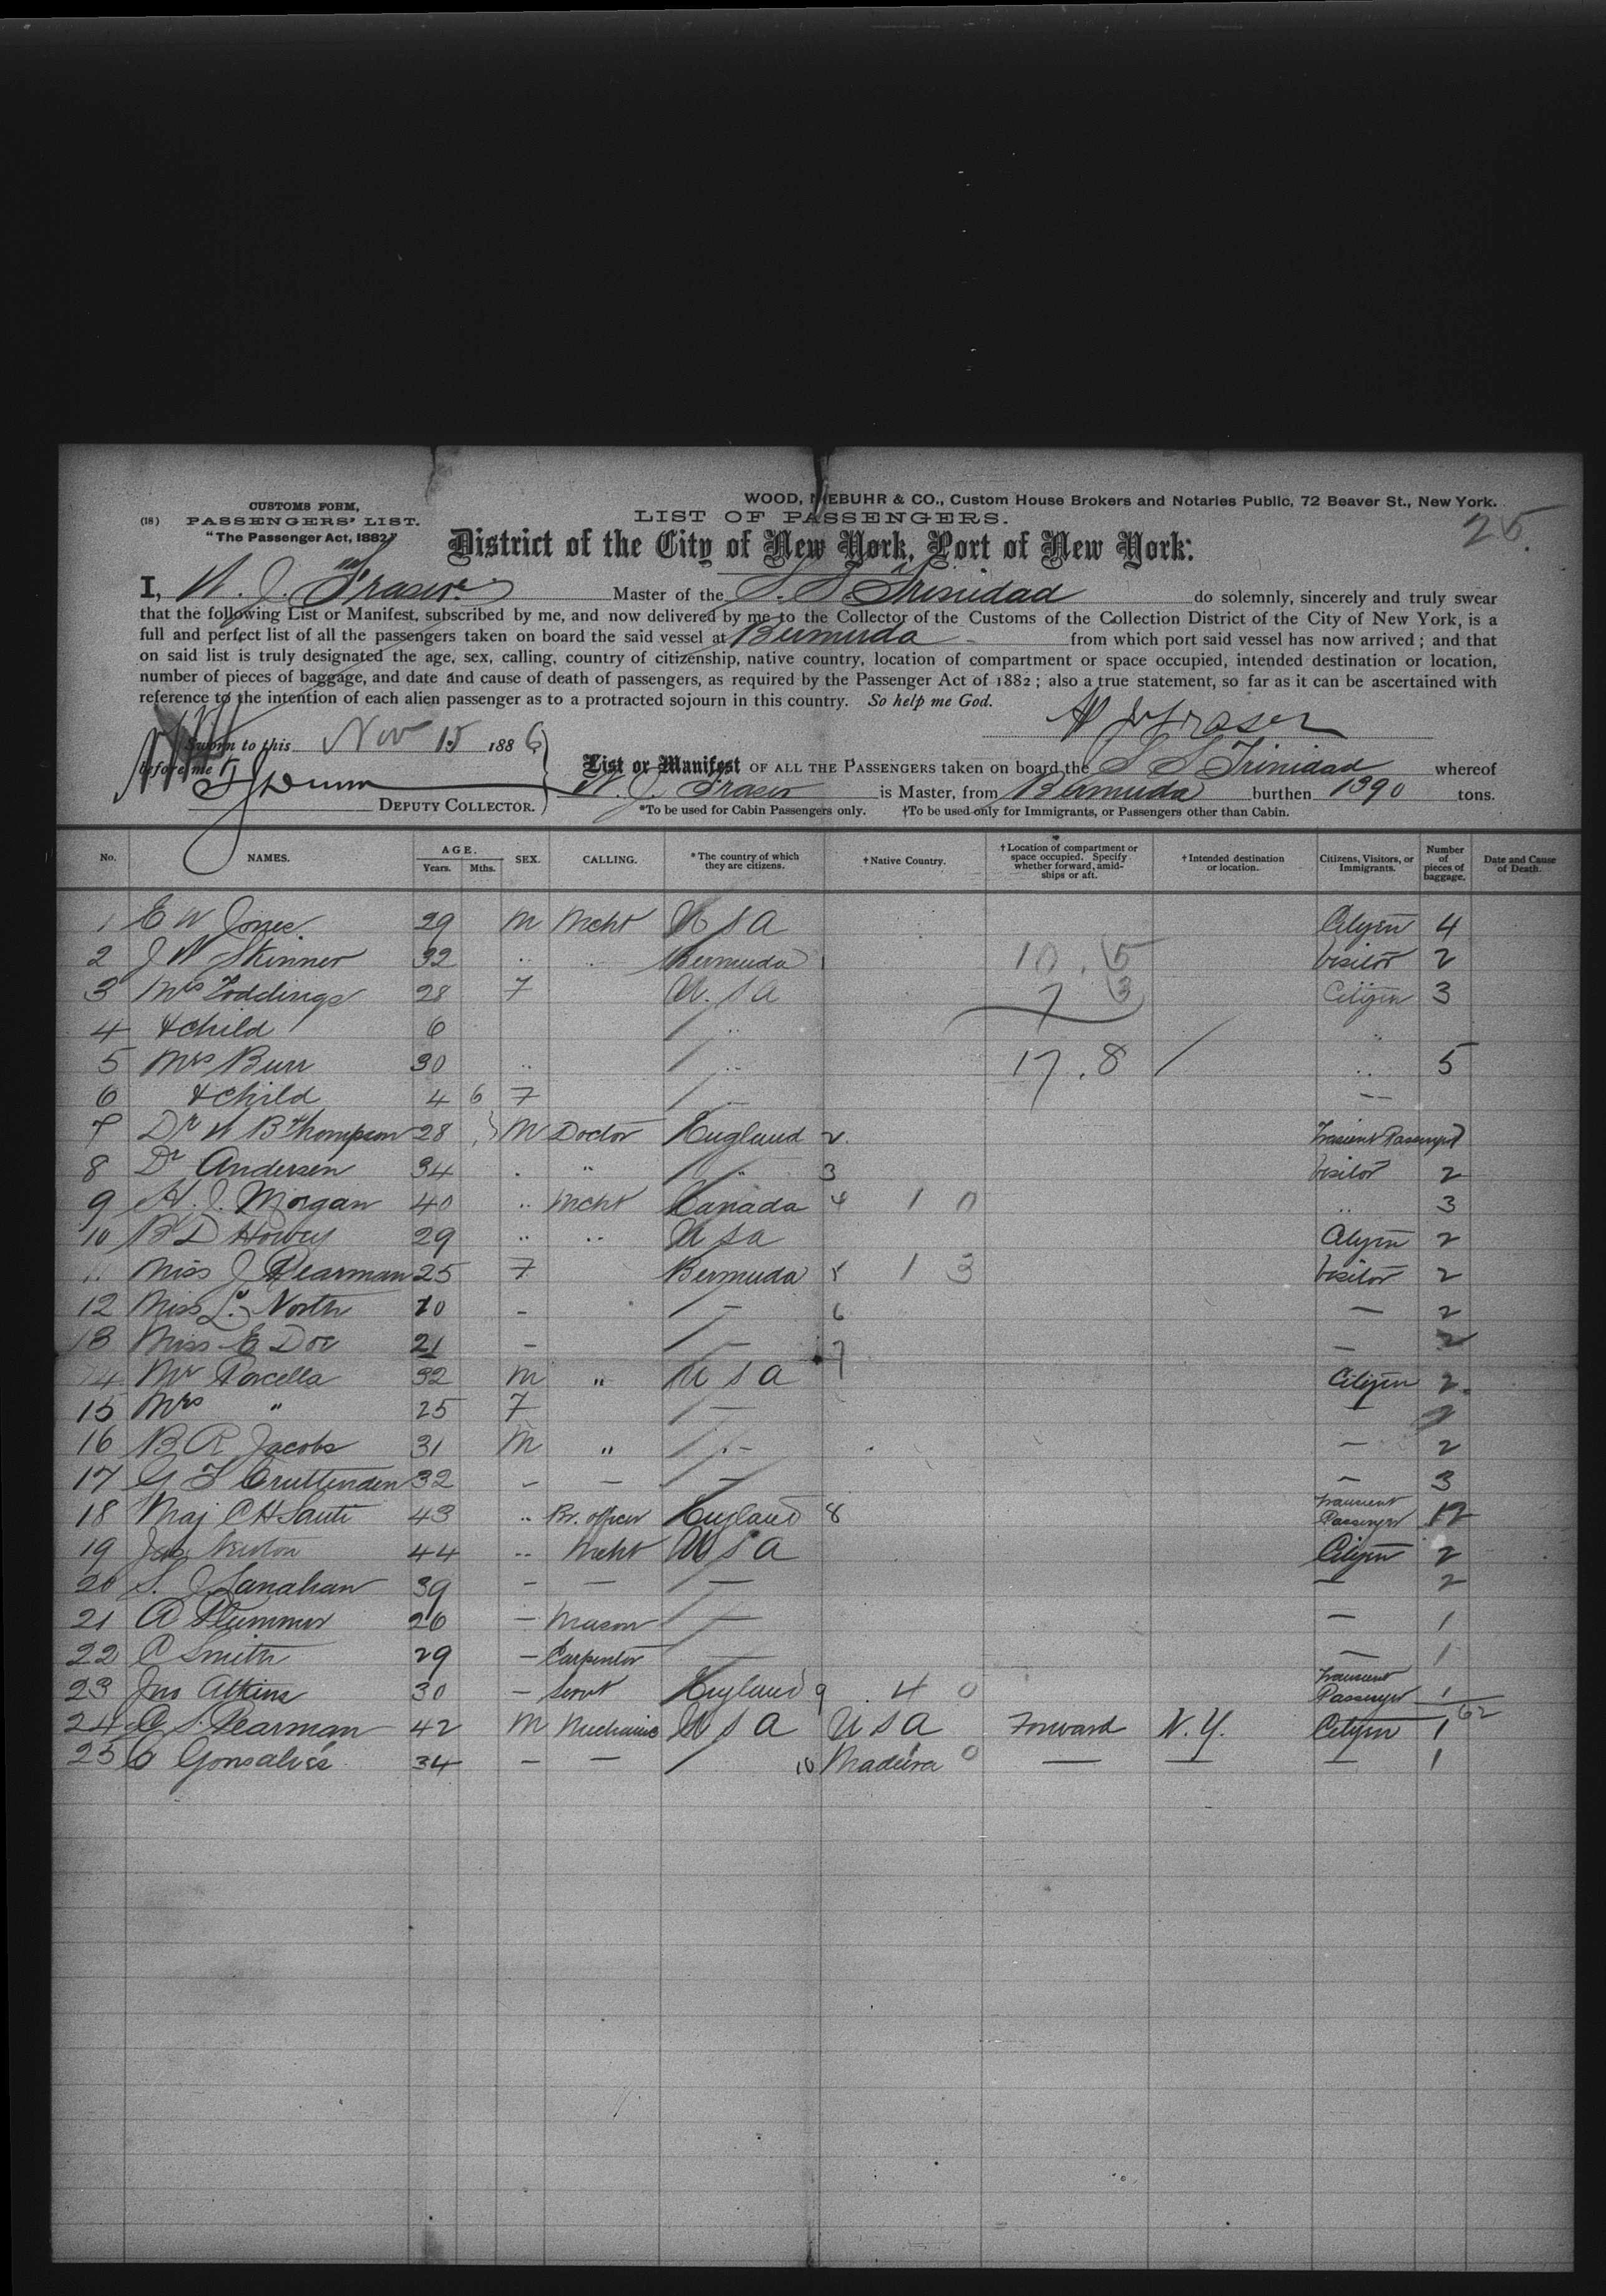 WOOD, NIEBUHR & CO., Custom House Brokers and Notaries Public, 72 Beaver St., New York.
CUSTOMS FORM,
(18) PASSENGERS' LIST.
"The Passenger Act, 1882"
LIST OF PASSENGERS.
25.
District of the City of New York, Port of New York:
I, W. J. Fraser Master of the S. S. Trinidad do solemnly, sincerely and truly swear
that the following List or Manifest, subscribed by me, and now delivered by me to the Collector of the Customs of the Collection District of the City of New York, is a
full and perfect list of all the passengers taken on board the said vessel at Bermuda from which port said vessel has now arrived; and that
on said list is truly designated the age, sex, calling, country of citizenship, native country, location of compartment or space occupied, intended destination or location,
number of pieces of baggage, and date and cause of death of passengers, as required by the Passenger Act of 1882; also a true statement, so far as it can be ascertained with
reference to the intention of each alien passenger as to a protracted sojourn in this country. So help me God.
W J Fraser
Sworn to this Nov 15 1886
before me
DEPUTY COLLECTOR.
List or Manifest OF ALL THE PASSENGERS taken on board the S S Trinidad whereof
W. J. Fraser is Master, from Bermuda burthen 1390 tons.
*To be used for Cabin Passengers only. †To be used only for Immigrants, or Passengers other than Cabin.
No. NAMES. AGE. Years. Mths. SEX. CALLING. *The country of which they are citizens. †Native Country. †Location of compartment or space occupied. Specify whether forward, amidships or aft. †Intended destination or location. Citizens, Visitors, or Immigrants. Number of pieces of baggage. Date and Cause of Death.
1 E W Jones 29 M Mcht U S A Citizen 4
2 J W Skinner 32 .. .. Bermuda 1 10. 5 visitor 2
3 Mrs Toddings 28 F U. S A 7 3 Citizen 3
4 & child 6 .. ..
5 Mrs Burr 30 .. .. 17. 8 / .. 5
6 & child 4 6 F — —
7 Dr W B Thompson 28 M Doctor England 2 Transient Passengr
8 Dr Andersen 34 . " " 3 visitor 2
9 H. J. Morgan 40 .. Mcht Canada 4 1 0 .. 3
10 29 .. .. U S a Citizen 2
11 Miss J Pearman 25 F Bermuda 5 1 3 visitor 2
12 Miss L. North 20 - — 6 — 2
13 Miss E Doe 21 - — 7 — 2
14 Mr Porcella 32 M " U S A Citizen 2
15 Mrs " 25 F — —
16 B R Jacobs 31 M " — — 2
17 G F Cruttenden 32 - — — — 3
18 Maj C H 43 .. Br. officer England 8 Transient Passenger 12
19 Newton 44 .. Mcht U S A Citizen 2
20 S. J Lanahan 39 - — — — 2
21 A Plummer 26 - Mason — — 1
22 C Smith 29 - Carpenter — — 1
23 Jno Atkins 30 - Servt England 9 4 0 Transient Passenger 1
62
24 S. Pearman 42 M Mechanic U S A U S A Forward N. Y. Citizen 1
25 Gonsalves 34 - — 10 Madeira 0 — — — 1